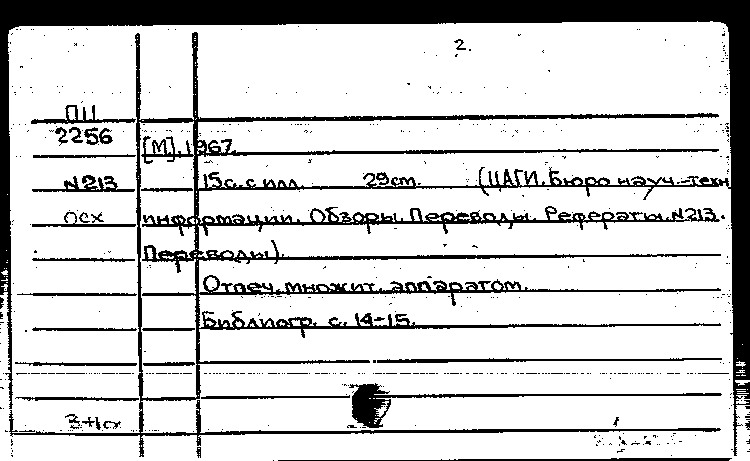 2.
П11
2256
[М]. 1967.
N213 15с. с илл. 29cm. (ЦАГИ. Бюро науч.-техн
осх информации. Обзоры. Переводы. Рефераты. N213.
Переводы).
Отпеч. множит. аппаратом.
Библиогр. с. 14-15.